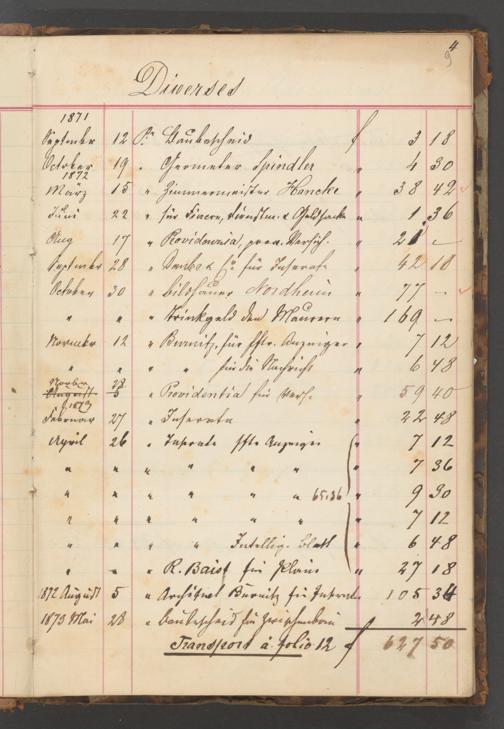 4
Diverses
1871
September 12 Pr Baubescheid f 3 18
October 19 " Geometer Spindler " 4 30
1872
März 15 " Zimmermeister Hancke " 38 42
Juni 22 " für Fiacre, " 1 36
Aug 17 " Providentia, prov. Versich. " 21 —
September 28 " für Inserate " 42 18
October 30 " Bildhauer Nordheim " 77 —
" " " Trinkgeld den Maurern " 169 —
November 12 " Burnitz, für Anzeiger " 7 12
" " " " für die Nachricht " 6 48
Novbr 28
August 5 " Providentia für Vers. " 59 40
1873
Februar 27 " Inserate " 22 48
April 26 " Inserate Anzeiger " 7 12
" " " " " " 7 36
" " " " " " 65.36 " 9 30
" " " " " " " 7 12
" " " " Intellig. Blatt " 6 48
" " " R. Baist für Pläne " 27 18
1872 August 5 " Architect Burnitz für Inserate 105 34
1873 Mai 28 " Baubescheid für 2 48
Transport a folio 12 f 627 50